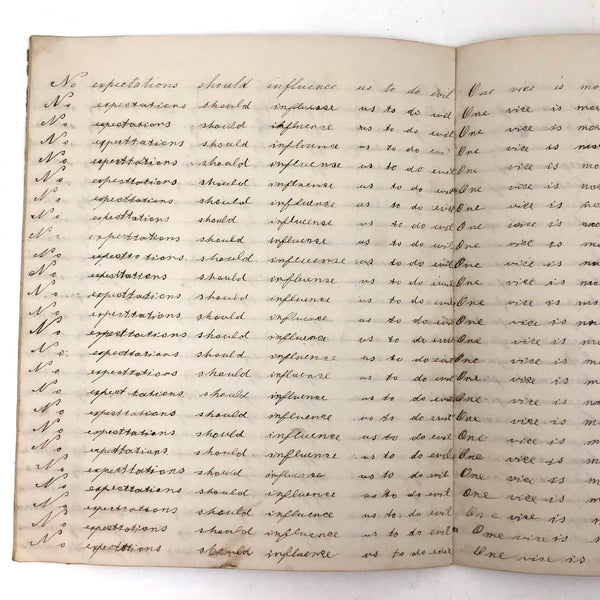 No expectations should influence us to do evil
No expectations should influense us to do evil
No expectations should influence us to do evil
No expectations should influense us to do evil
No expettations should influense us to do evil
No expectations should influense us to do evil
No expectations should influence us to do evil
No expectations should influence us to do evil
No expectations should influence us to do evil
No expectations should influense us to do evil
No expettations should influense us to do evil
No expectations should influense us to do evil
No expectations should influence us to do evil
No expectations should influence us to do evil
No expectations should influence us to do evil
No expectations should influence us to do evil
No expectations should influence us to do evil
No expectations should influence us to do evil
No expectations should influence us to do evil
No expectations should influence us to do evil
No expectations should influence us to do evil
No expectations should influence us to do evil
No expectations should influence us to do evil
No expectations should influence us to do evil
No expettations should influence us to do evil
One vice is mo
One vice is mor
One vice is mor
One vice is mor
One vice is mor
One vice is mor
One vice is mo
One vice is mo
One vice is mo
One vice is mo
One vice is mo
One vice is mo
One vice is mo
One vice is mo
One vice is mo
One vice is mo
One vice is mo
One vice is mo
One vice is mo
One vice is mo
One vice is mo
One vice is mo
One vice is mo
One vice is mo
One vice is